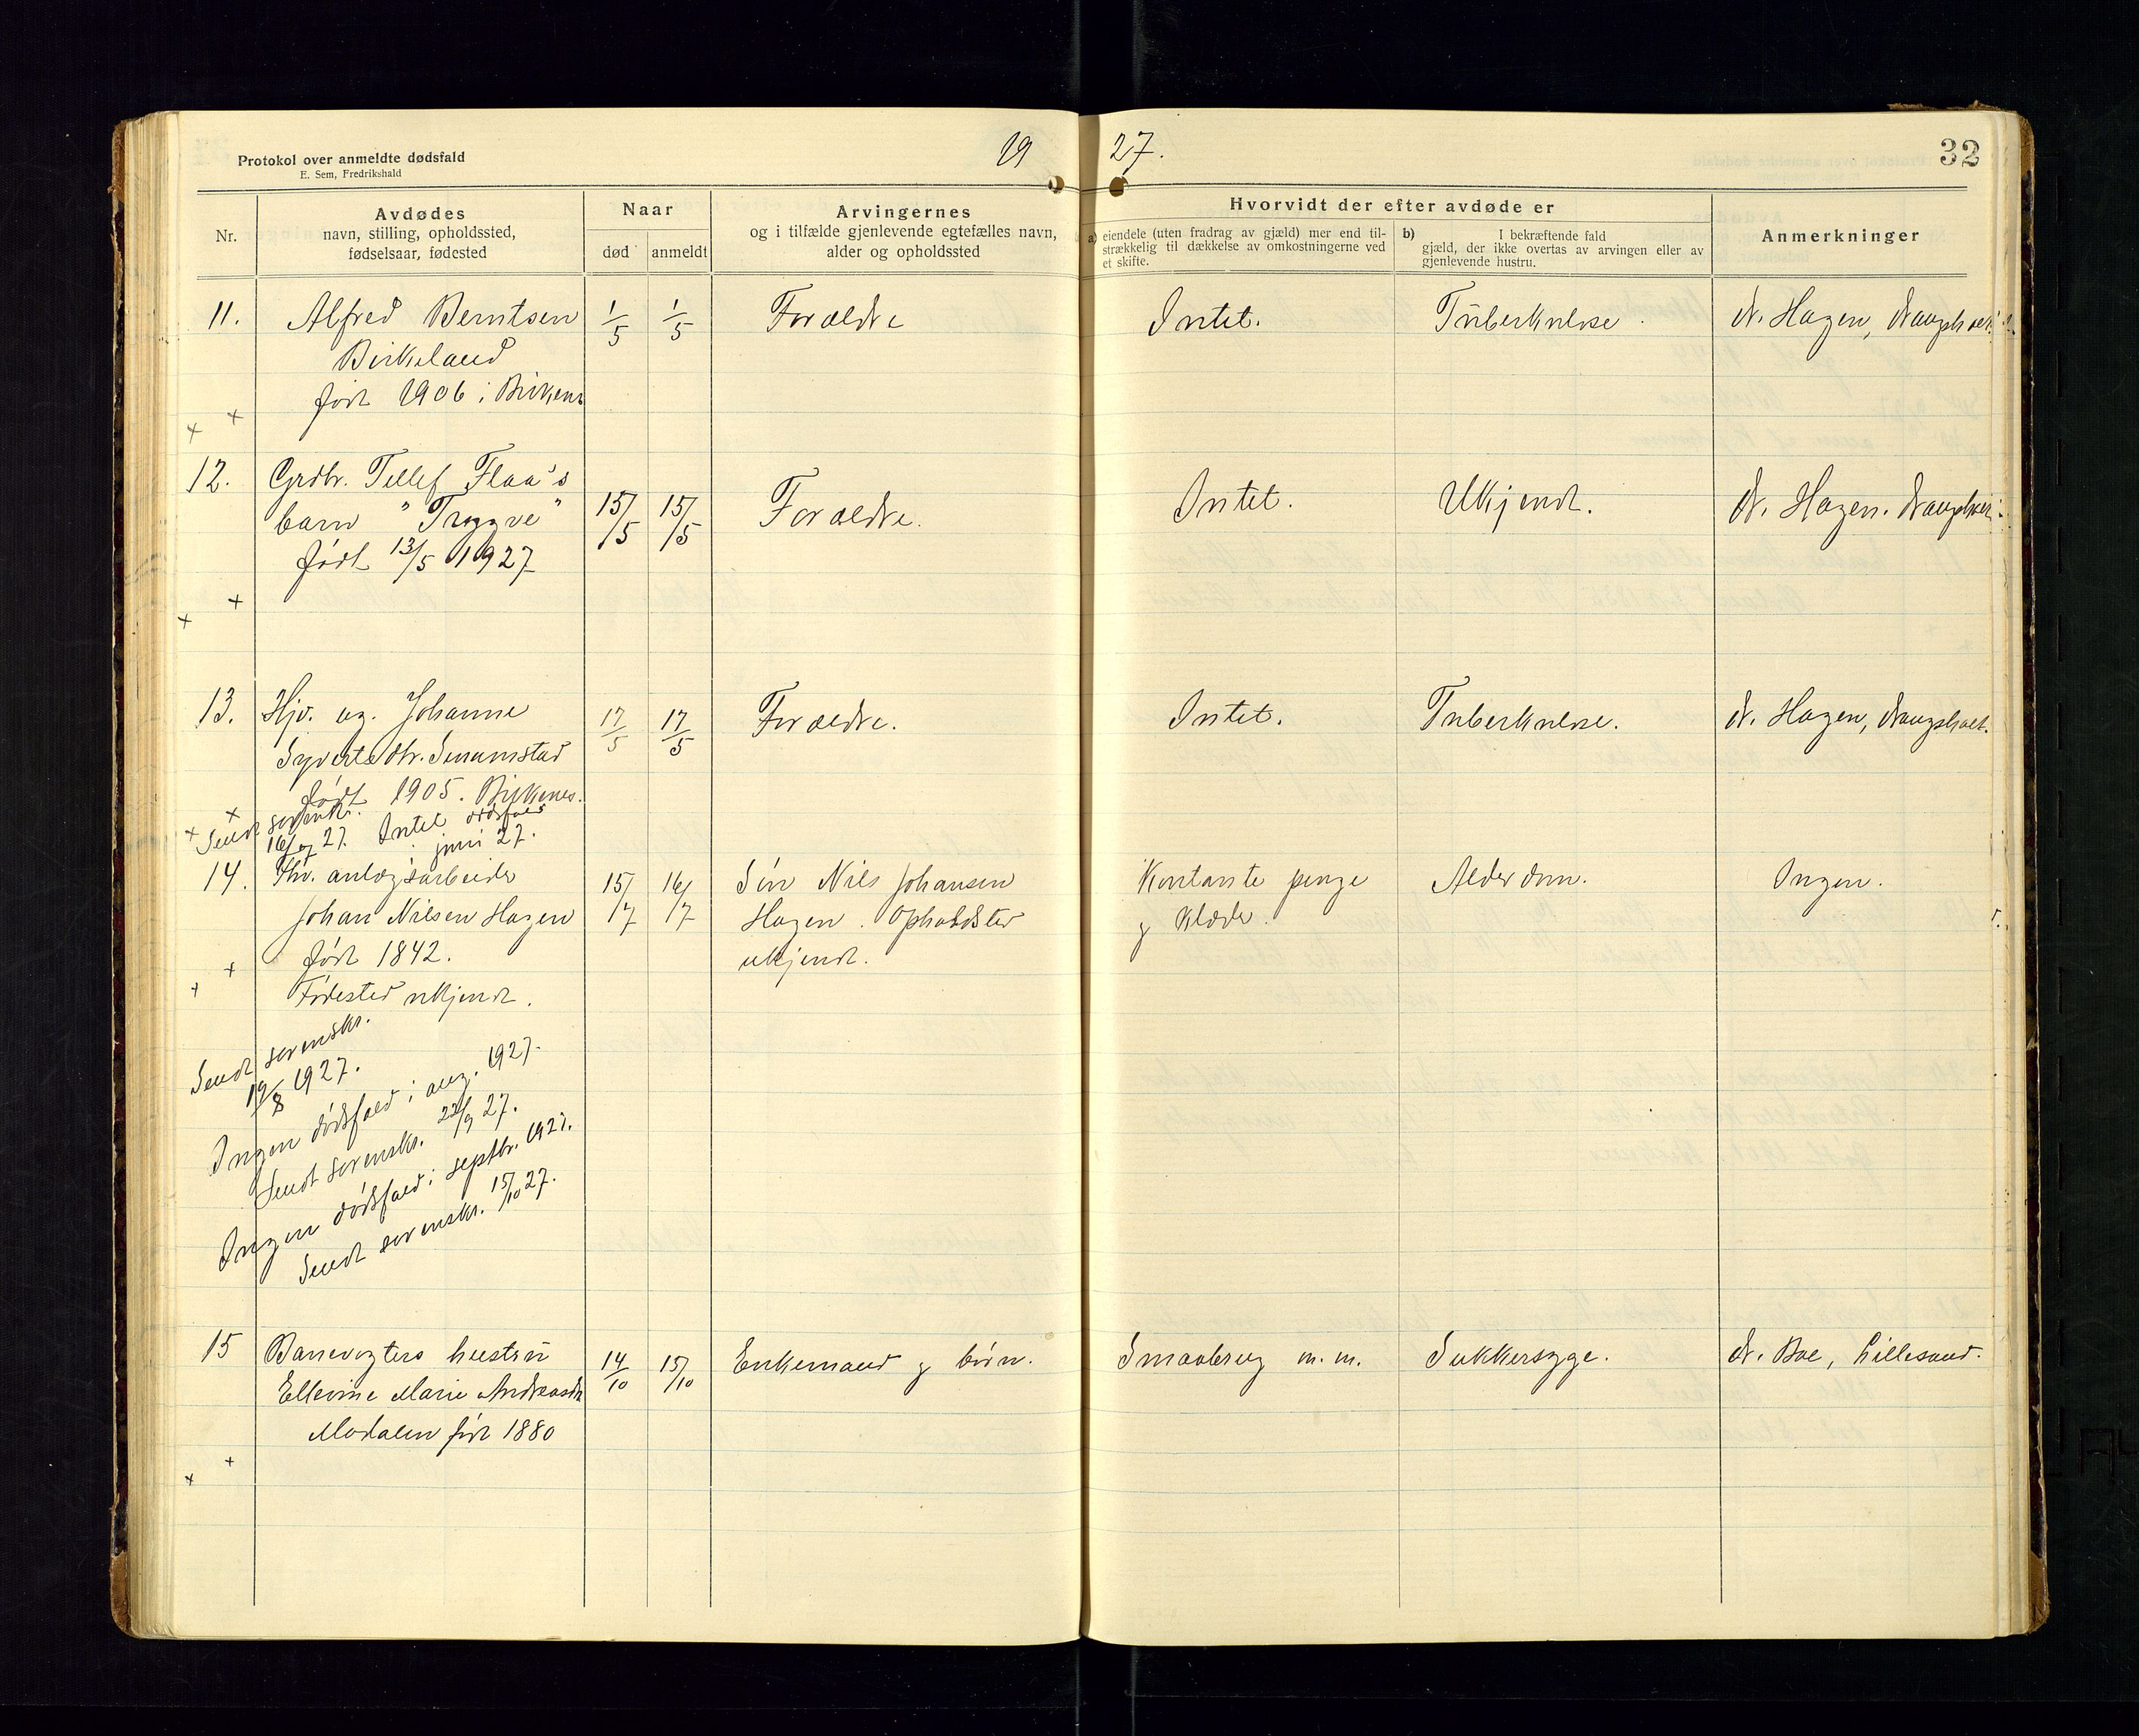 Protokol over anmeldte dødsfald
E. Sem, Fredrikshald
19 27.
32
Nr.
Avdødes
navn, stilling, opholdssted,
fødselsaar, fødested
Naar
død
anmeldt
Arvingernes
og i tilfælde gjenlevende egtefælles navn,
alder og opholdssted
Hvorvidt der efter avdøde er
a) eiendele (uten fradrag av gjæld) mer end til-
strækkelig til dækkelse av omkostningerne ved
et skifte.
b) I bekræftende fald
gjæld, der ikke overtas av arvingen eller av
gjenlevende hustru.
Anmerkninger
11. Alfred Berntsen 1/5 1/5 Forældre Intet. Tuberkulose. dr. Hagen,
Birkeland
født 1906 i Birkenes
+ +
12. Grdbr. Tellef Flaa's
barn "Trygve" 15/5 15/5 Forældre. Intet. Ukjendt. dr. Hagen.
født 13/5 1927
+ +
13. Hjv. ug. Johanne 17/5 17/5 Forældre. Intet. Tuberkulose. dr. Hagen,
født 1905. Birkenes.
+ +
Sendt sorenskr.
16/7 27. Intet dødsfald
juni 27.
14. Fhv. anlægsarbeider 15/7 16/7 Søn Nils Johansen Kontante penge Alderdom. Ingen.
Johan Nilsen Hagen Hagen. Opholdsted og klæder.
født 1842. ukjendt.
+ +
Fødested ukjendt.
Sendt sorenskr.
19/8 1927.
Ingen dødsfald i aug. 1927.
Sendt sorenskr. 22/9 27.
Ingen dødsfald i septbr. 1927.
Sendt sorenskr. 15/10 27.
15 Banevogters hustru 14/10 15/10 Enkemand og børn. Smaabrug m. m. Sukkersyge. dr. Boe, Lillesand.
Ellevine Marie Andreasdtr
Modalen født 1880
+ +